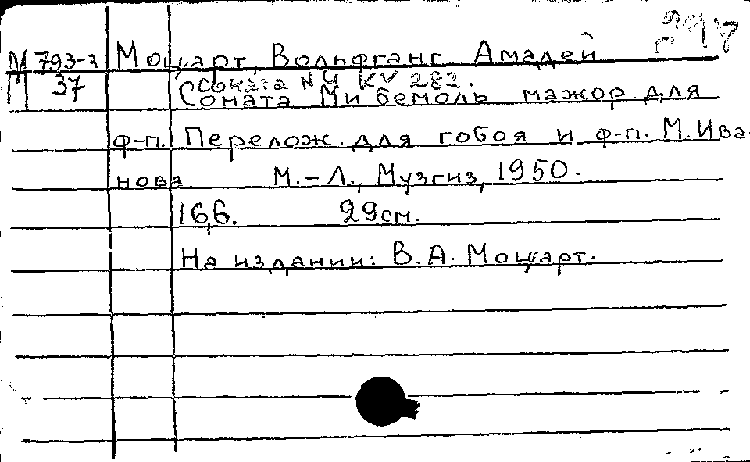 М 793-3 Моцарт, Вольфганг Амадей
М 37 Соната №4 KV 282.
Соната Ми бемоль мажор для
ф-п. Перелож. для гобоя и ф-п. М. Ива-
нова М.-Л., Музгиз, 1950.
16, 6. 29см.
На издании: В. А. Моцарт.